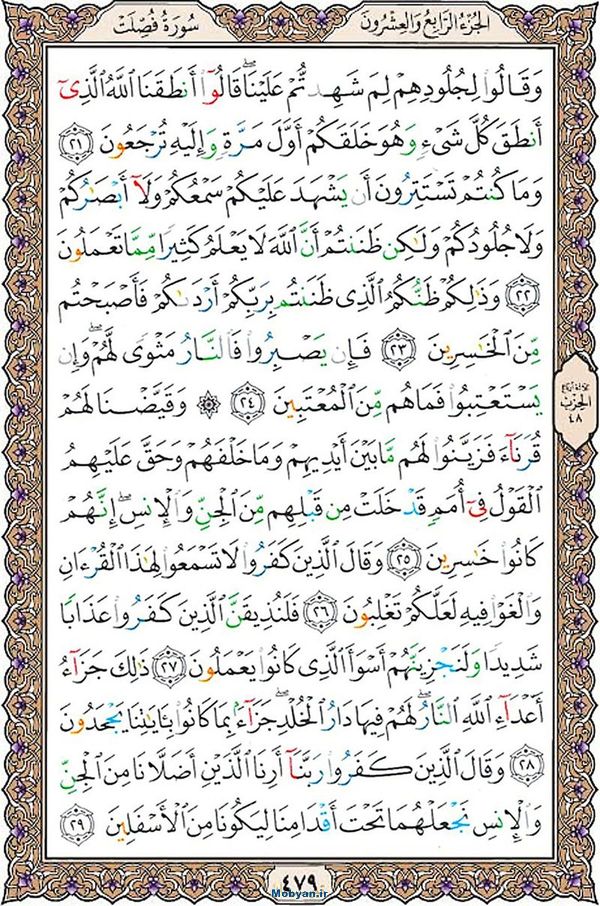 الجزء الرابع والعشرون
سورة فصلت
وَقَالُوا۟ لِجُلُودِهِمْ لِمَ شَهِدتُّمْ عَلَيْنَا ۖ قَالُوٓا۟ أَنطَقَنَا ٱللَّهُ ٱلَّذِىٓ
أَنطَقَ كُلَّ شَىْءٍ وَهُوَ خَلَقَكُمْ أَوَّلَ مَرَّةٍ وَإِلَيْهِ تُرْجَعُونَ ٢١
وَمَا كُنتُمْ تَسْتَتِرُونَ أَن يَشْهَدَ عَلَيْكُمْ سَمْعُكُمْ وَلَآ أَبْصَٰرُكُمْ
وَلَا جُلُودُكُمْ وَلَٰكِن ظَنَنتُمْ أَنَّ ٱللَّهَ لَا يَعْلَمُ كَثِيرًا مِّمَّا تَعْمَلُونَ
٢٢ وَذَٰلِكُمْ ظَنُّكُمُ ٱلَّذِى ظَنَنتُم بِرَبِّكُمْ أَرْدَىٰكُمْ فَأَصْبَحْتُم
مِّنَ ٱلْخَٰسِرِينَ ٢٣ فَإِن يَصْبِرُوا۟ فَٱلنَّارُ مَثْوًى لَّهُمْ ۖ وَإِن
يَسْتَعْتِبُوا۟ فَمَا هُم مِّنَ ٱلْمُعْتَبِينَ ٢٤ ۞ وَقَيَّضْنَا لَهُمْ
قُرَنَآءَ فَزَيَّنُوا۟ لَهُم مَّا بَيْنَ أَيْدِيهِمْ وَمَا خَلْفَهُمْ وَحَقَّ عَلَيْهِمُ
ٱلْقَوْلُ فِىٓ أُمَمٍ قَدْ خَلَتْ مِن قَبْلِهِم مِّنَ ٱلْجِنِّ وَٱلْإِنسِ ۖ إِنَّهُمْ
كَانُوا۟ خَٰسِرِينَ ٢٥ وَقَالَ ٱلَّذِينَ كَفَرُوا۟ لَا تَسْمَعُوا۟ لِهَٰذَا ٱلْقُرْءَانِ
وَٱلْغَوْا۟ فِيهِ لَعَلَّكُمْ تَغْلِبُونَ ٢٦ فَلَنُذِيقَنَّ ٱلَّذِينَ كَفَرُوا۟ عَذَابًا
شَدِيدًا وَلَنَجْزِيَنَّهُمْ أَسْوَأَ ٱلَّذِى كَانُوا۟ يَعْمَلُونَ ٢٧ ذَٰلِكَ جَزَآءُ
أَعْدَآءِ ٱللَّهِ ٱلنَّارُ ۖ لَهُمْ فِيهَا دَارُ ٱلْخُلْدِ ۖ جَزَآءًۢ بِمَا كَانُوا۟ بِـَٔايَٰتِنَا يَجْحَدُونَ
٢٨ وَقَالَ ٱلَّذِينَ كَفَرُوا۟ رَبَّنَآ أَرِنَا ٱلَّذَيْنِ أَضَلَّانَا مِنَ ٱلْجِنِّ
وَٱلْإِنسِ نَجْعَلْهُمَا تَحْتَ أَقْدَامِنَا لِيَكُونَا مِنَ ٱلْأَسْفَلِينَ ٢٩
الحزب
٤٨
٤٧٩
Mobyan.ir